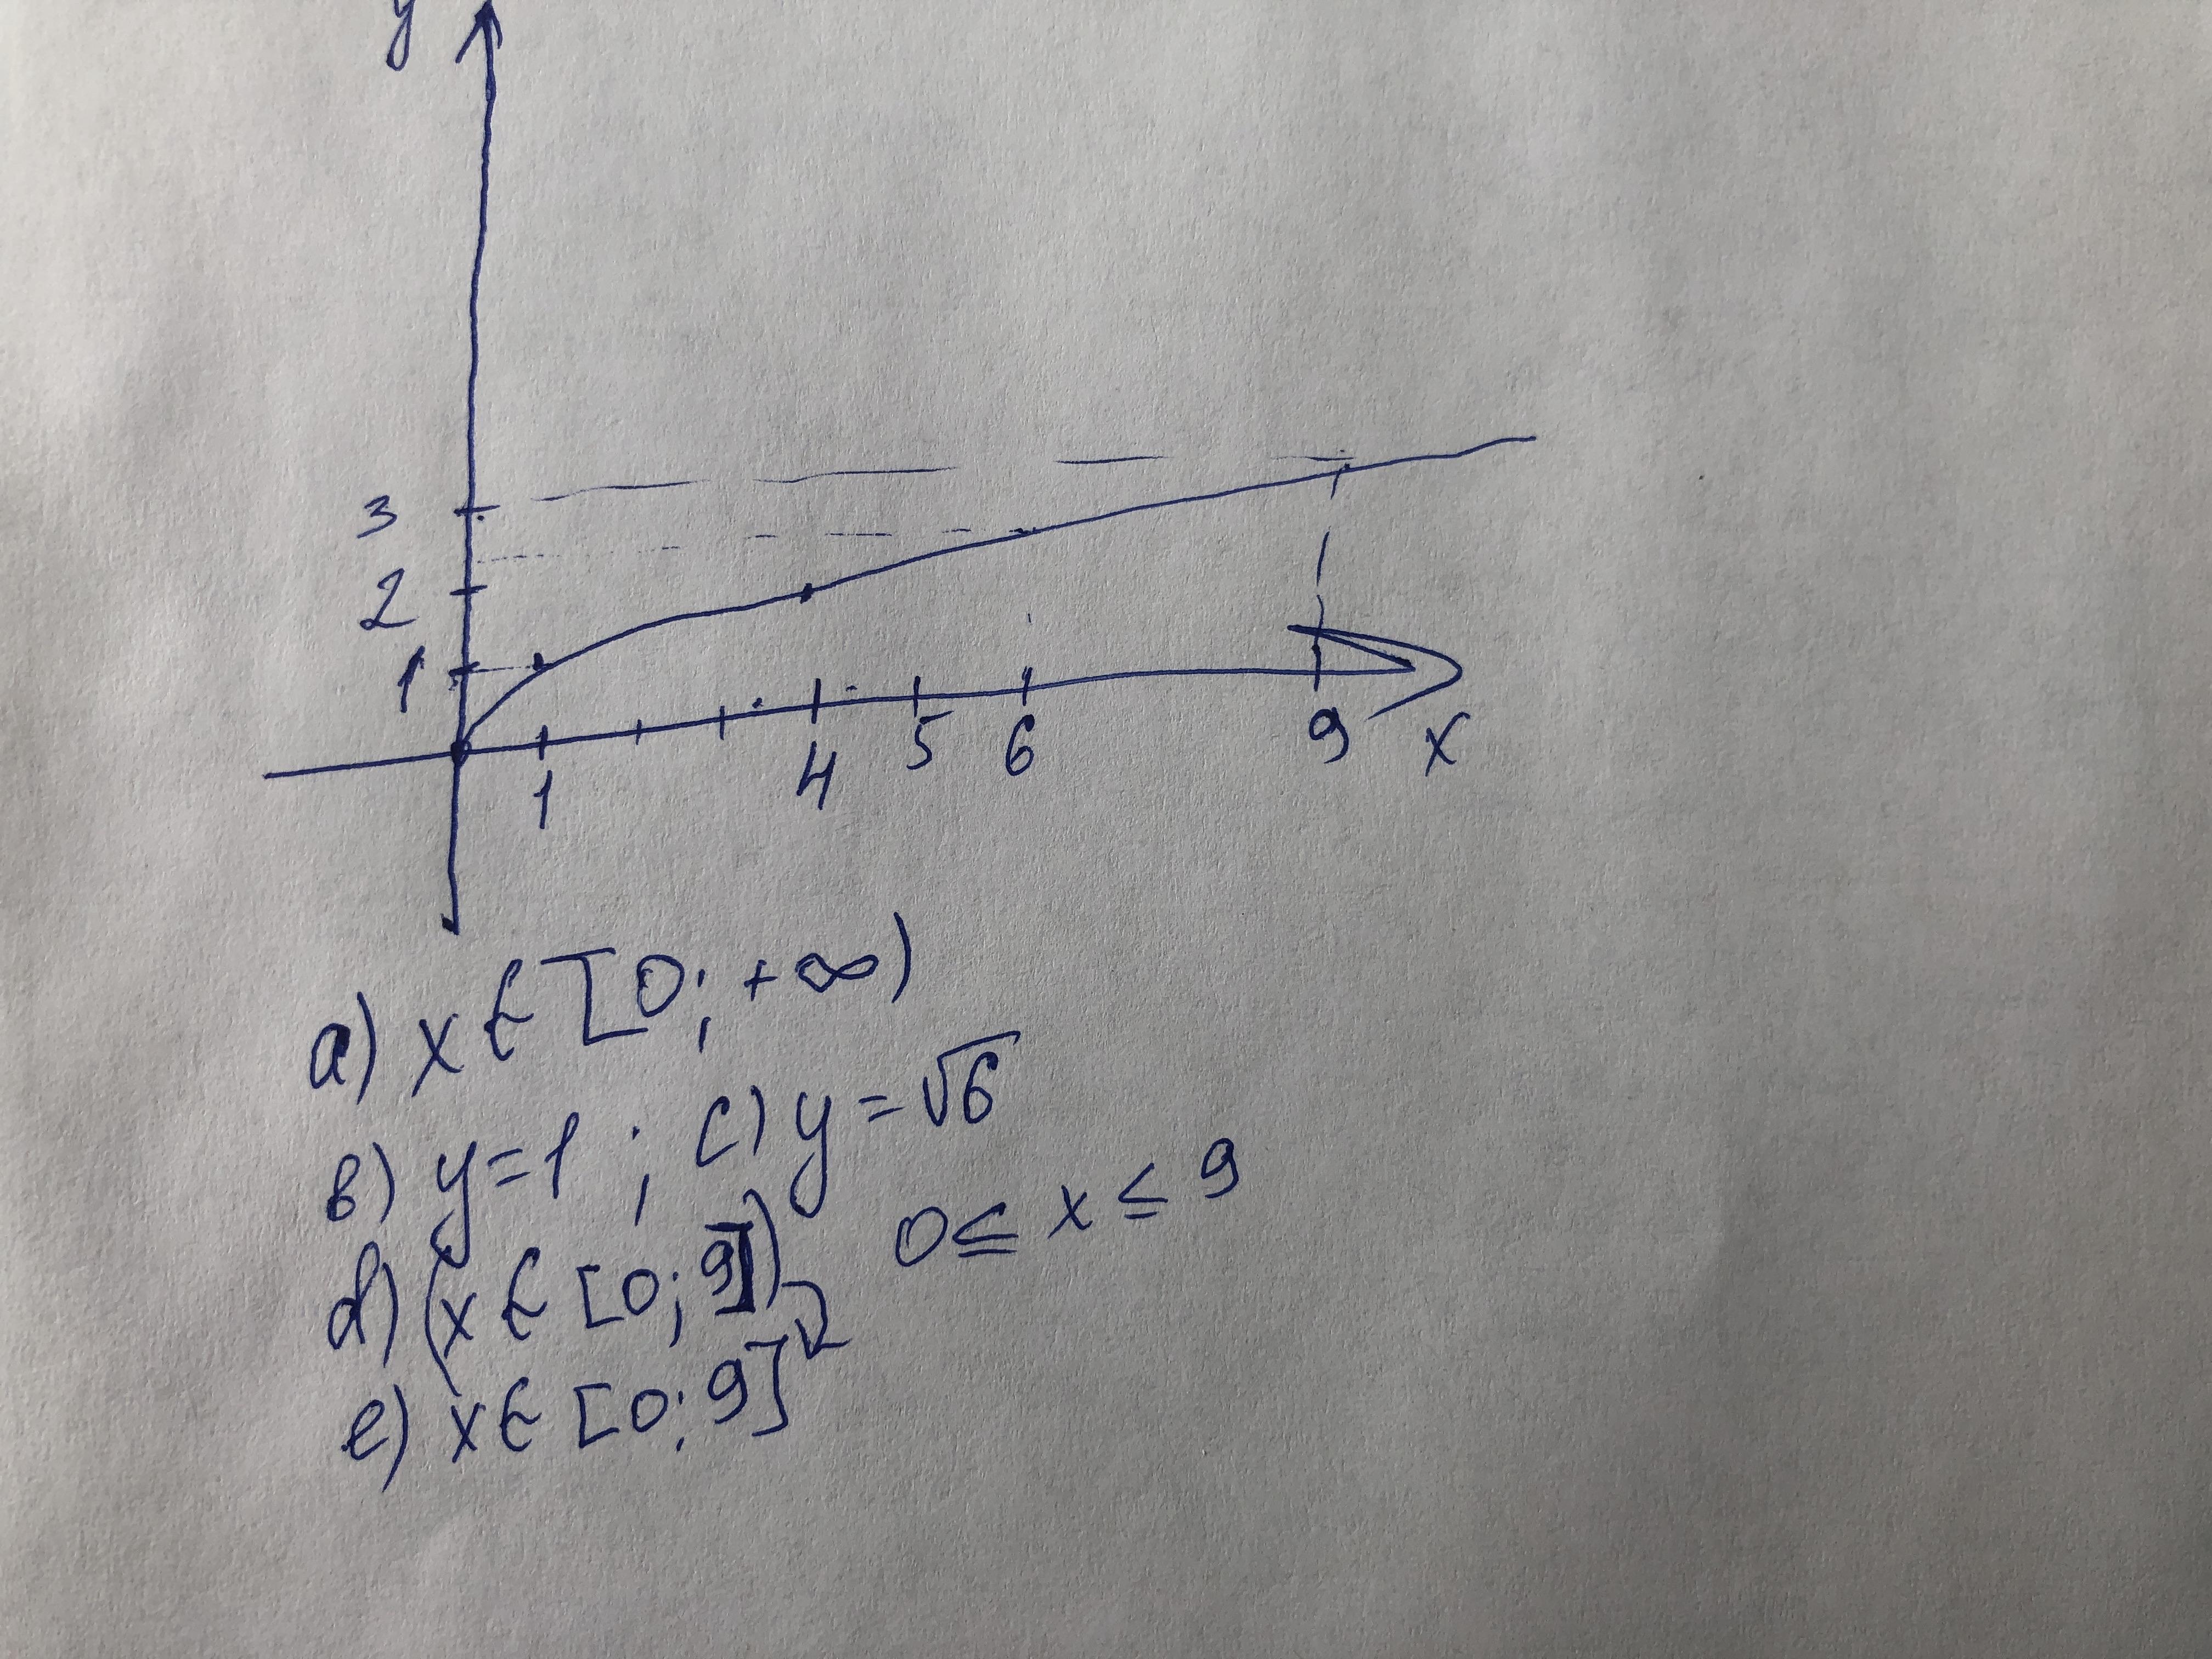 y
3
2
1
1 4 5 6 9 x
a) x ∈ [0; +∞)
в) y = 1 ; c) y = √6
d) (x ∈ [0; 9]) 0 ≤ x ≤ 9
e) x ∈ [0; 9]²